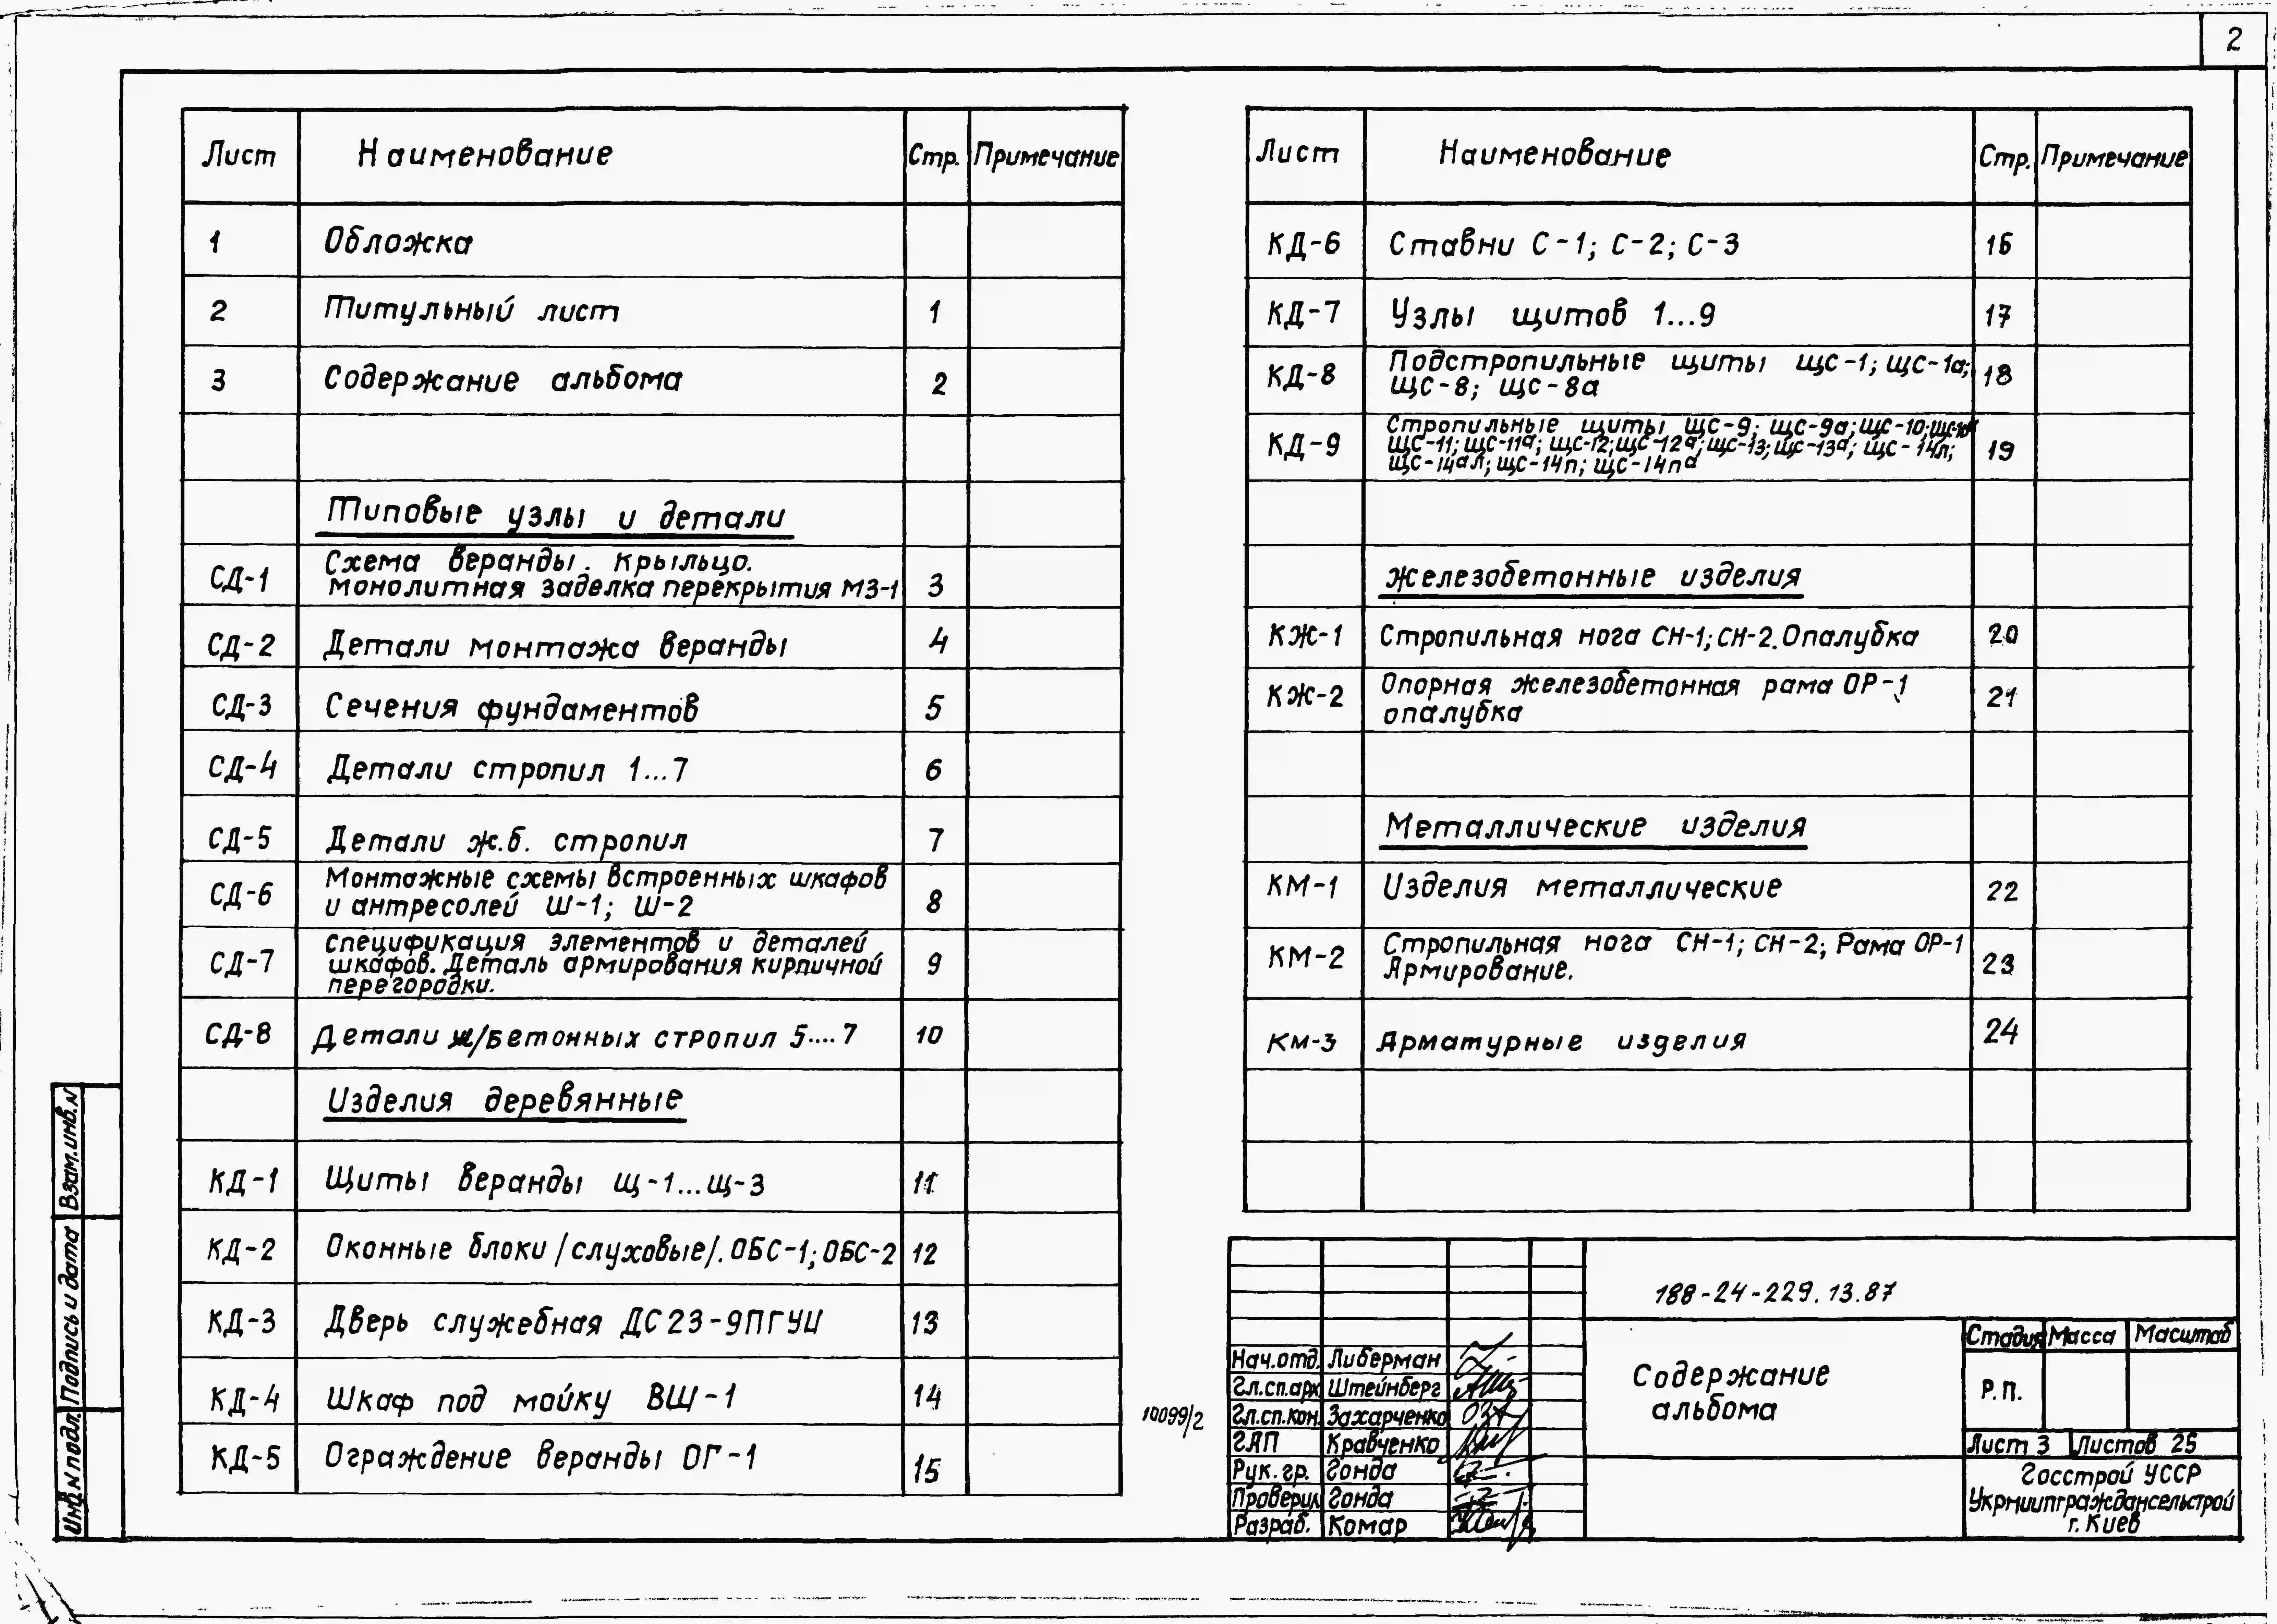 2
Лист Наименование Стр. Примечание
1 Обложка
2 Титульный лист 1
3 Содержание альбома 2
Типовые узлы и детали
СД-1 Схема веранды. Крыльцо.
Монолитная заделка перекрытия МЗ-1 3
СД-2 Детали монтажа веранды 4
СД-3 Сечения фундаментов 5
СД-4 Детали стропил 1...7 6
СД-5 Детали ж.б. стропил 7
СД-6 Монтажные схемы встроенных шкафов
и антресолей Ш-1; Ш-2 8
СД-7 Спецификация элементов и деталей
шкафов. Деталь армирования кирпичной 9
перегородки.
СД-8 Детали ж/бетонных стропил 5....7 10
Изделия деревянные
КД-1 Щиты веранды Щ-1...Щ-3 11
КД-2 Оконные блоки /слуховые/. ОБС-1; ОБС-2 12
КД-3 Дверь служебная ДС23-9ПГУЦ 13
КД-4 Шкаф под мойку ВШ-1 14
КД-5 Ограждение веранды ОГ-1 15
Лист Наименование Стр. Примечание
КД-6 Ставни С-1; С-2; С-3 16
КД-7 Узлы щитов 1...9 17
КД-8 Подстропильные щиты ЩС-1; ЩС-1а;
ЩС-8; ЩС-8а 18
КД-9 Стропильные щиты ЩС-9; ЩС-9а; ЩС-10; ЩС-10а
ЩС-11; ЩС-11а; ЩС-12; ЩС-12а; ЩС-13; ЩС-13а; ЩС-14л; 19
ЩС-14ал; ЩС-14п; ЩС-14па
Железобетонные изделия
КЖ-1 Стропильная нога СН-1; СН-2. Опалубка 20
КЖ-2 Опорная железобетонная рама ОР-1
опалубка 21
Металлические изделия
КМ-1 Изделия металлические 22
КМ-2 Стропильная нога СН-1; СН-2; Рама ОР-1
Армирование. 23
КМ-3 Арматурные изделия 24
Взам.инв.N
Подпись и дата
Инв.N подл.
10099/2
188-24-229.13.87
Нач.отд. Либерман
Гл.сп.арх. Штейнберг
Гл.сп.кон. Захарченко
ГАП Кравченко
Рук.гр. Гонда
Проверил Гонда
Разраб. Комар
Содержание
альбома
Стадия Масса Масштаб
Р.П.
Лист 3 Листов 25
Госстрой УССР
Укрниипграждансельстрой
г. Киев